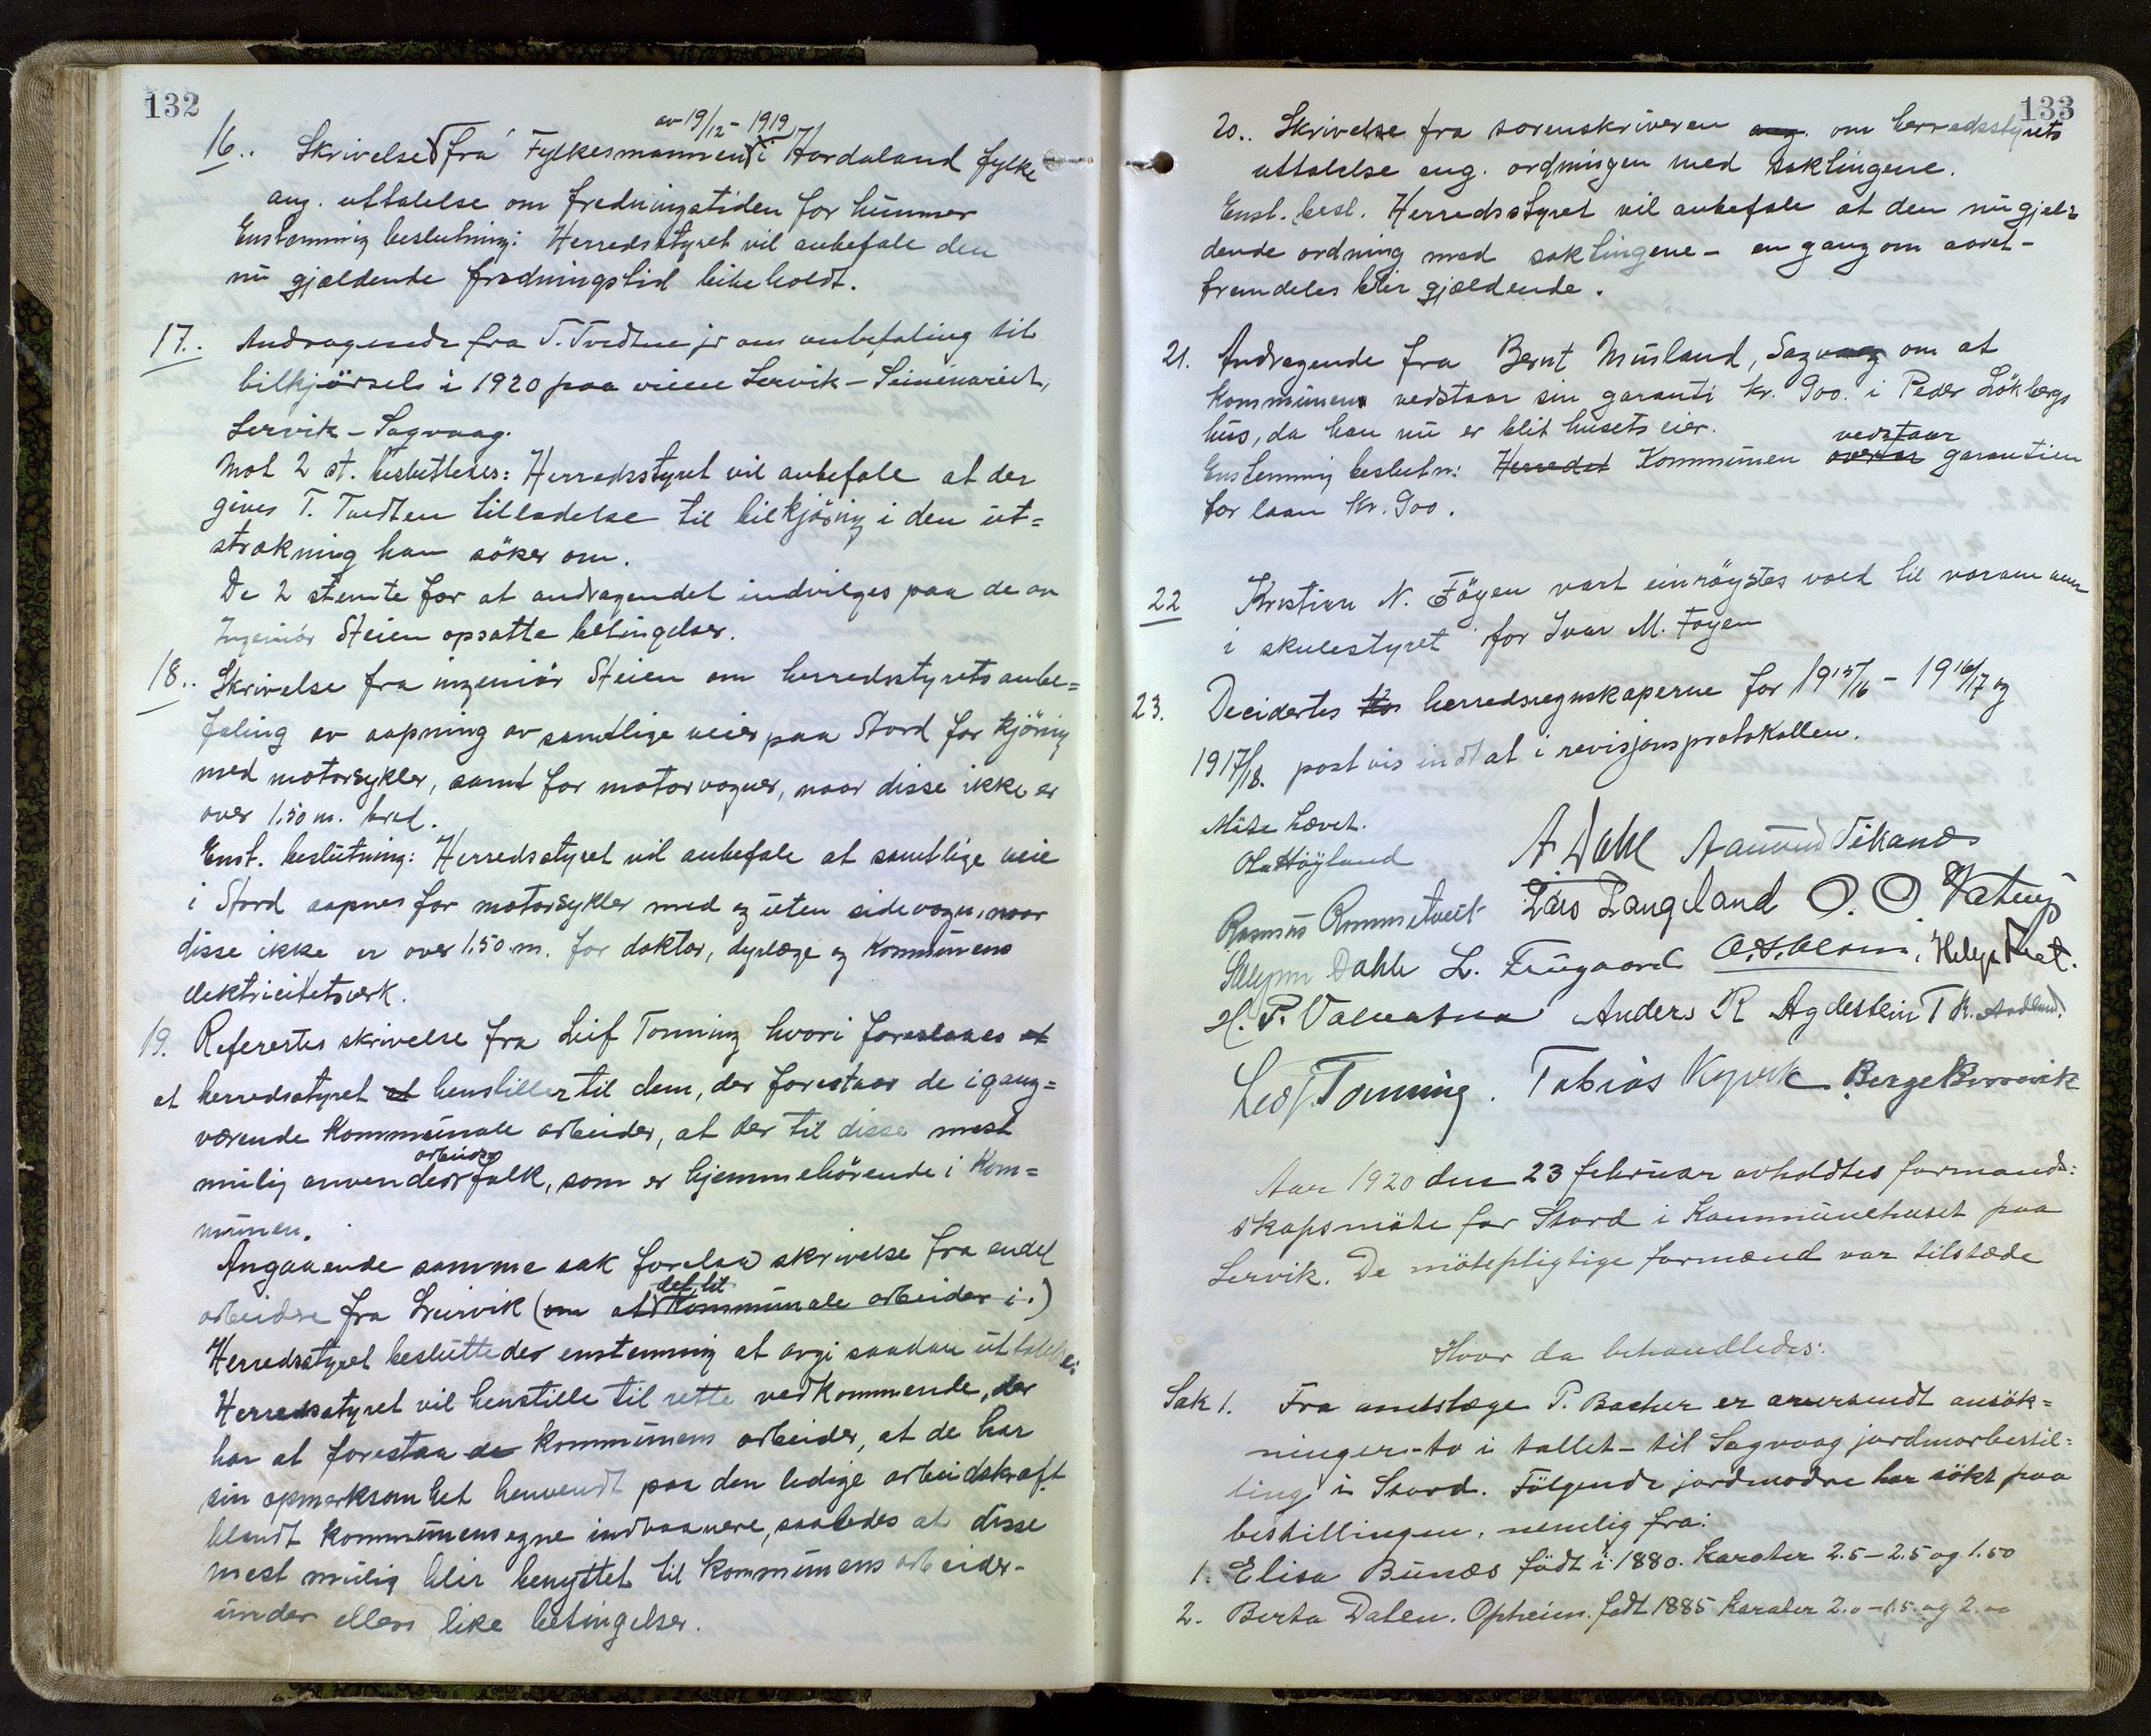 132
av 19/12 - 1919
16.. Skrivelse fra Fylkesmannen i Hordaland fylke
ang. uttalelse om fredningstiden for hummer
Enstemmig beslutning: Herredsstyret vil anbefale den
nu gjældende fredningstid beholdt.
17.. Andragende fra T. Tvedten jr om anbefaling til
bilkjörsel i 1920 paa veiene Lervik - Seminariet,
Lervik - Sagvaag.
Mot 2 st. besluttedes: Herredsstyret vil anbefale at der
gives T. Tvedten tilladelse til bilkjöring i den ut=
strækning han söker om.
De 2 stemte for at andragendet indvilges paa de av
Ingeniör Steien opsatte betingelser.
18.. Skrivelse fra ingeniör Steien om herredsstyrets anbe=
faling av aapning av samtlige veier paa Stord for kjöring
med motorsykler, samt for motorvogner, naar disse ikke er
over 1,50 m. bred.
Enst. beslutning: Herredsstyret vil anbefale at samtlige veie
i Stord aapnes for motorsykler med og uten sidevogn, naar
disse ikke er over 1.50 m. for doktor, dyrlæge og Kommunens
elektricitetsverk.
19. Referertes skrivelse fra Leif Tonning hvori foreslaaes at
at herredsstyret at henstiller til dem, der forestaar de igang=
værende Kommunale arbeider, at der til disse mest
arbeids
mulig anvendes folk, som er hjemmehörende i Kom=
munen.
Angaaende samme sak forelaa skrivelse fra endel
det til
arbeidere fra Leirvik (om at Kommunale arbeider i.)
Herredsstyret besluttedes enstemmig at avgi saadan uttalelse:
Herredsstyret vil henstille til rette vedkommende, der
har at forestaa de kommunens arbeider, at de har
sin opmerksomhet henvendt paa den ledige arbeidskraft
blandt kommunens egne indvaanere, saaledes at disse
mest mulig blir benyttet til kommunens arbeider -
under ellers like betingelser.
133
20.. Skrivelse fra sorenskriveren ang. om herredsstyrets
uttalelse ang. ordningen med saktingene.
Enst. besl. Herredsstyret vil anbefale at den nu gjel=
dende ordning med saktingene - en gang om aaret -
fremdeles blir gjældende.
21. Andragende fra Bernt Musland, Sagvaag om at
Kommunen vedstaar sin garanti kr. 900. i Peder Lökbergs
hus, da han nu er blit husets eier.
vedstaar
Enstemmig beslutn: Herredet Kommunen overtar garantien
for laan kr. 900.
22 Kristian N. Föyen vart einröystes vald til varamann
i skulestyret for Ivar M. Föyen
23. Decidertes herredsregnskaperne for 1915/16 - 1916/17 og
1917/18. postvis indtat i revisjonsprotokollen.
Möte hævet.
Ola Höyland A Dahl Aamund Tekanes
Rasmus Rommetveit Lars Langeland O. O. Vatna
Dahle L. Helge
H. P. Valvatna Anders R Agdestein T K.
Leif Tonning. Tobias Kyvik Berge
Aar 1920 den 23 februar avholdtes formand=
skapsmöte for Stord i Kommunehuset paa
Lervik. De mötepligtige formænd var tilstæde
Hvor da behandledes:
Sak 1. Fra amtslæge P. Bacher er oversendt ansök=
ninger - to i tallet - til Sagvaag jordmorbestil=
ling i Stord. Fölgende jordmödre har sökt paa
bestillingen, nemlig fra:
1. Elisa Bunæs födt i 1880. Karakter 2.5 - 2.5 og 1.50
2. Berta Dalen. Opheim. födt 1885 Karakter 2.0 - 1.5. og 2.00